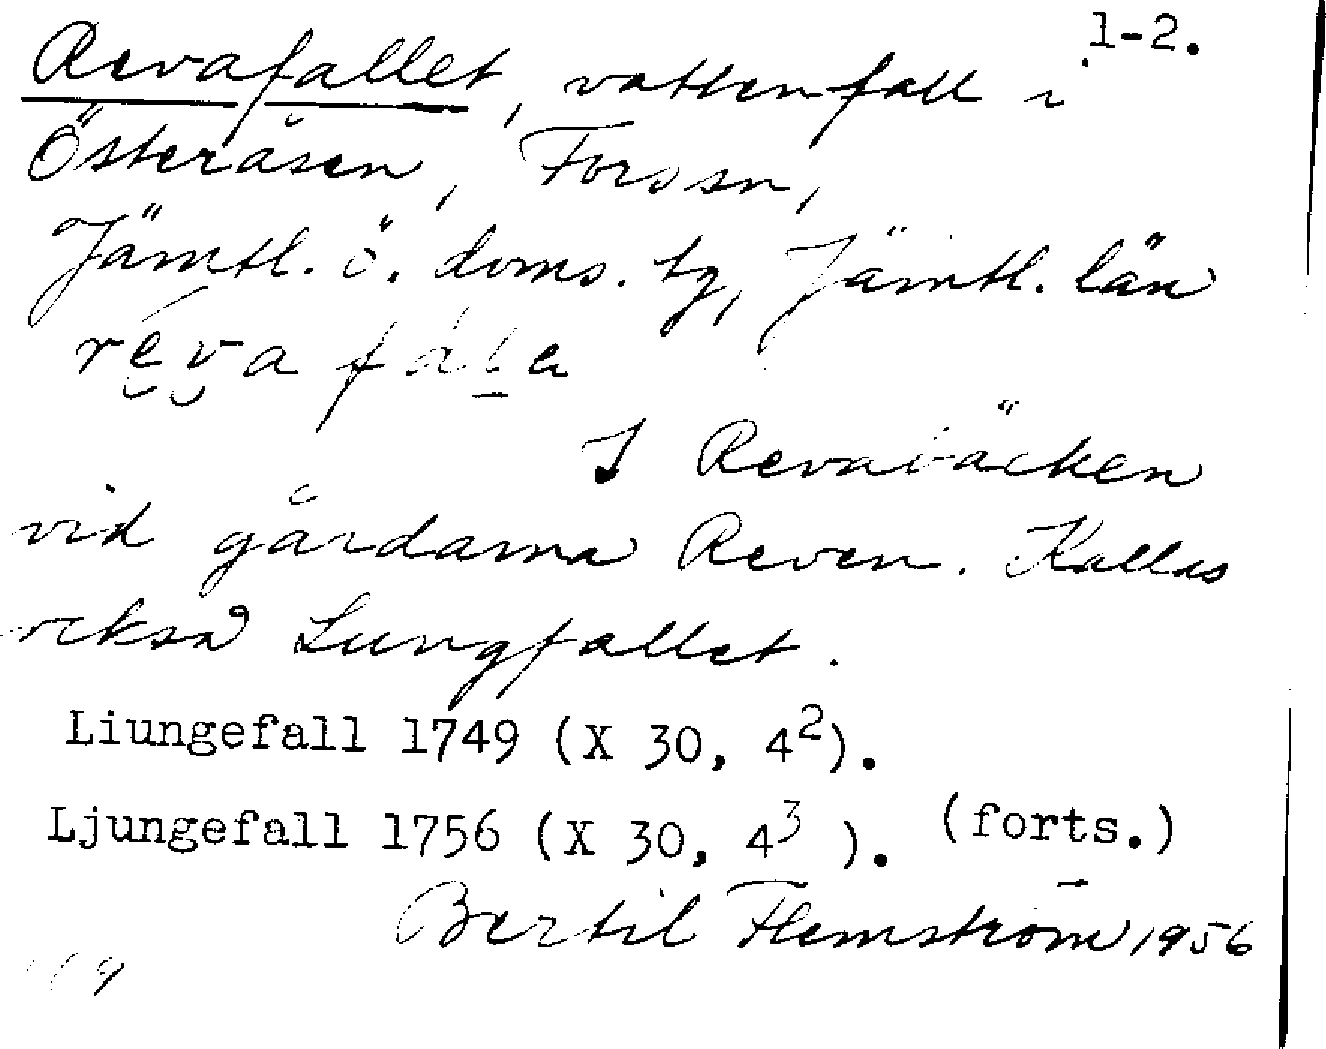 1-2.
Revafallet, vattenfall i
Österåsen, Fors sn,
Jämtl. ö. doms. tg, Jämtl. län
I Revabäcken
vid gårdarna Reven. Kallas
också Lungfallet.
Liungefall 1749 (X 30, 4²).
Ljungefall 1756 (X 30, 4³ ). (forts.)
Bertil Flemström 1956